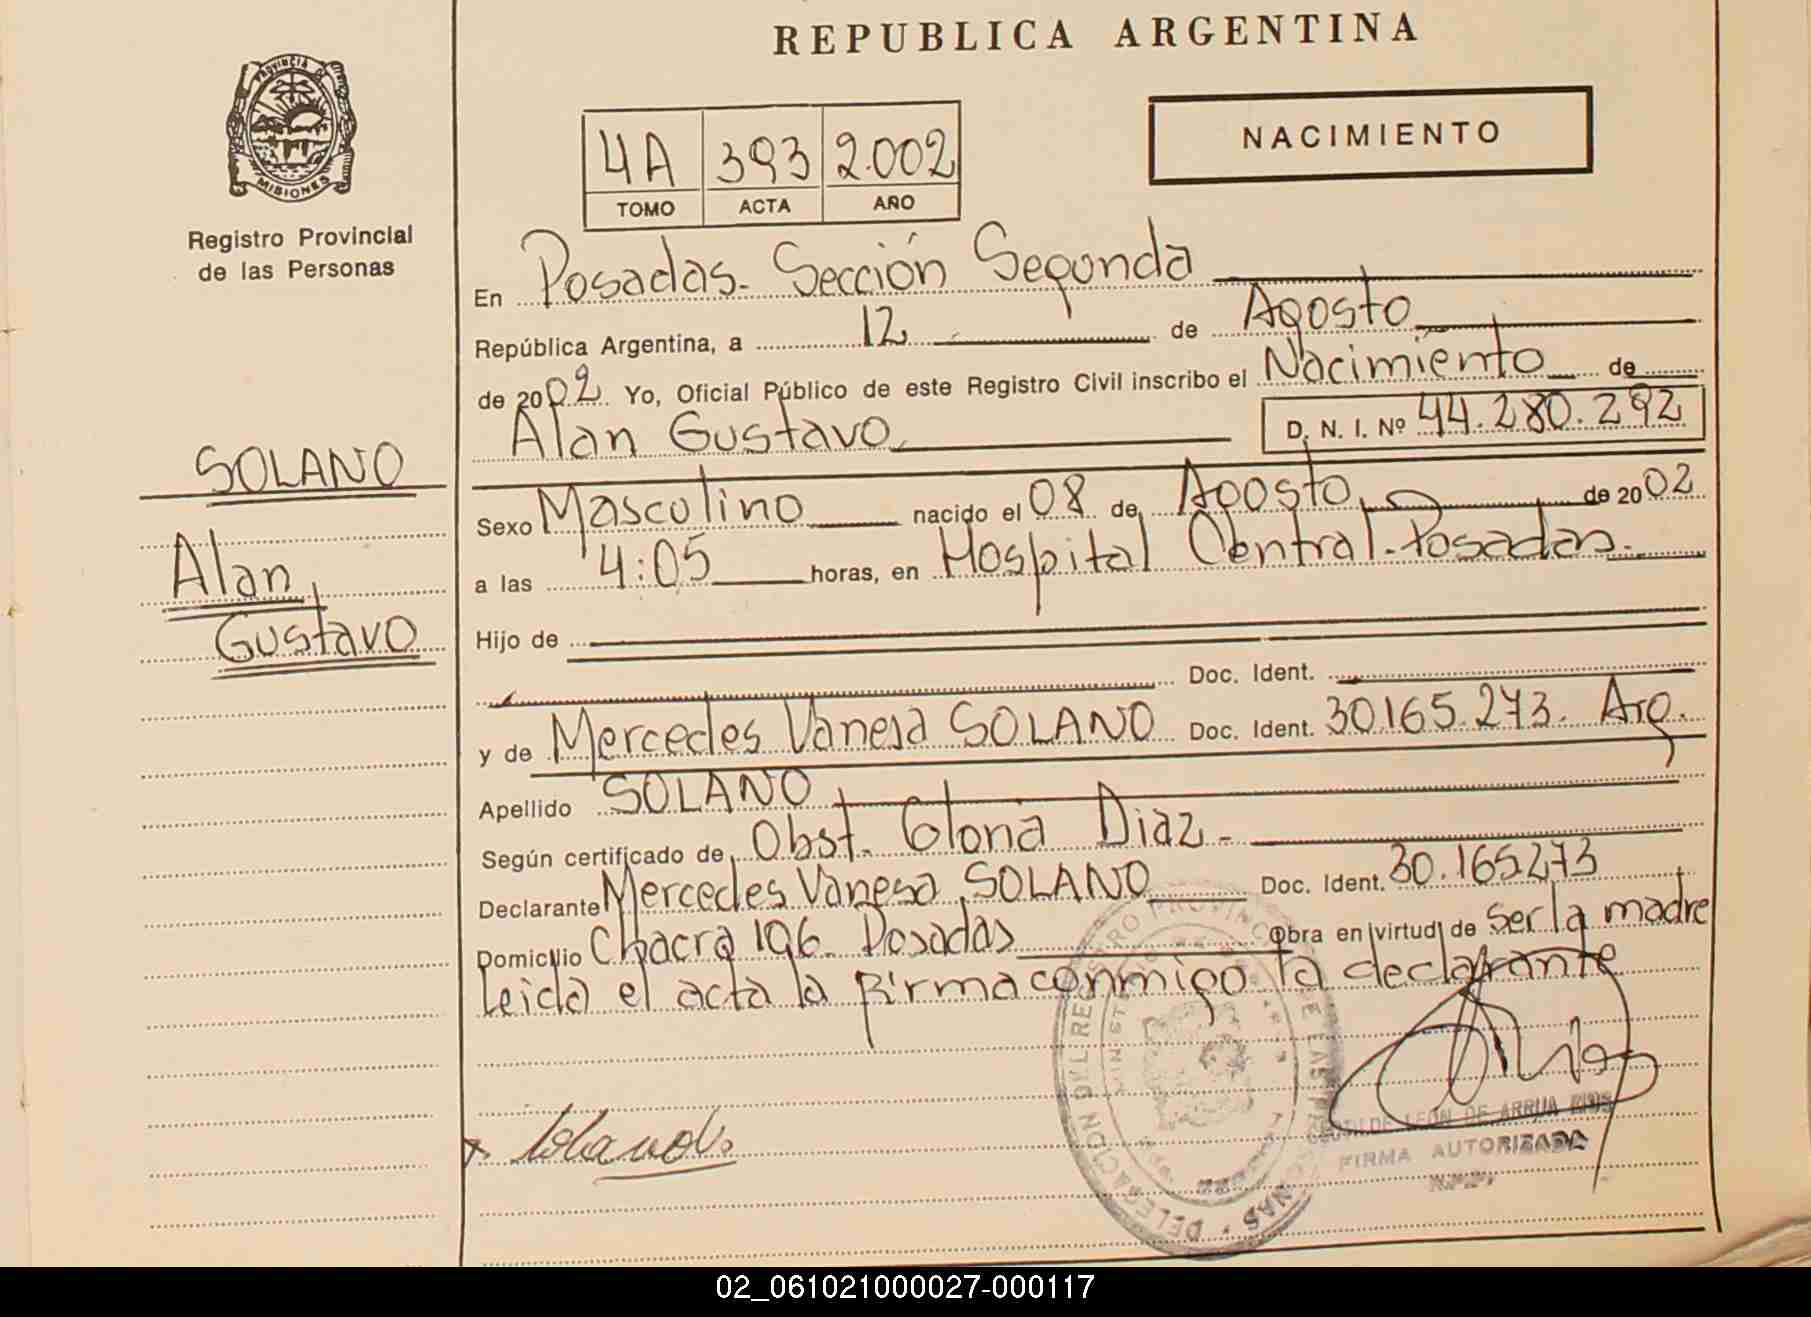 REPUBLICA ARGENTINA
PROVINCIA DE
MISIONES
Registro Provincial
de las Personas
4A 393 2.002
TOMO ACTA AÑO
NACIMIENTO
En Posadas. Sección Segunda
República Argentina, a 12 de Agosto
de 2002 Yo, Oficial Público de este Registro Civil inscribo el Nacimiento de
Alan Gustavo D. N. I. Nº 44.280.292
SOLANO
Alan
Gustavo
Sexo Masculino nacido el 08 de Agosto de 2002
a las 4:05 horas, en Hospital Central-Posadas.
Hijo de
Doc. Ident.
y de Mercedes Vanesa SOLANO Doc. Ident. 30.165.273. Arg.
Apellido SOLANO
Según certificado de Obst. Gloria Diaz-
Declarante Mercedes Vanesa SOLANO Doc. Ident. 30.165.273
Domicilio Chacra 196. Posadas Obra en virtud de ser la madre
Leida el acta la firma conmigo la declarante
DELEGACION DEL REGISTRO PROVINCIAL DE LAS PERSONAS
DE LEON DE ARRUA
FIRMA AUTORIZADA
02_061021000027-000117